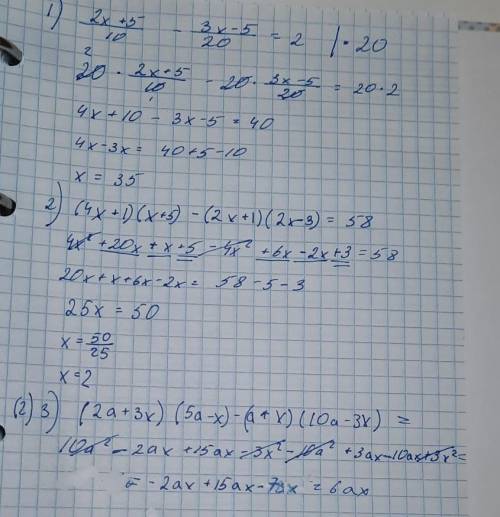 1) (2x+5)/10 - (3x-5)/20 = 2 | · 20
²20 · (2x+5)/10 - 20 · (3x-5)/20 = 20 · 2
4x+10 - 3x-5 = 40
4x-3x = 40+5-10
x = 35
2) (4x+1)(x+5) - (2x+1)(2x-3) = 58
4x² +20x + x +5 - 4x² +6x -2x +3 = 58
20x+x+6x-2x = 58-5-3
25x = 50
x = 50/25
x=2
(2) 3) (2a+3x) (5a-x)-(a+x)(10a-3x) =
10a² - 2ax +15ax - 3x² - 10a² +3ax-10ax+3x² =
= -2ax +15ax - x = 6ax